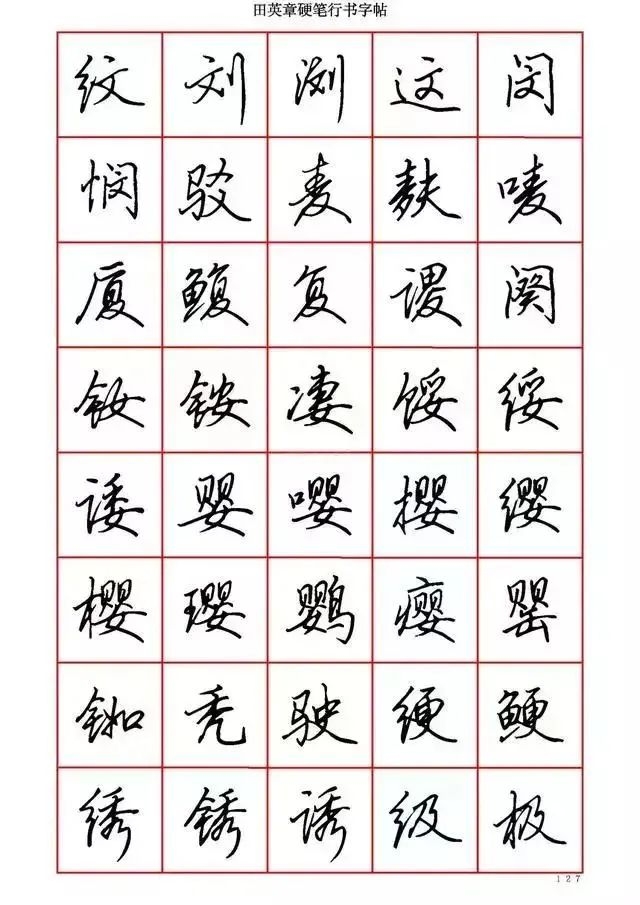 田英章硬笔行书字帖
纹刘浏这闵
悯驳麦麸唛
厦鳆复谡阕
钕铵凄馁绥
诿婴嘤撄缨
樱璎鹦瘿罂
铷秃驶绠鲠
绣锈诱级极
127